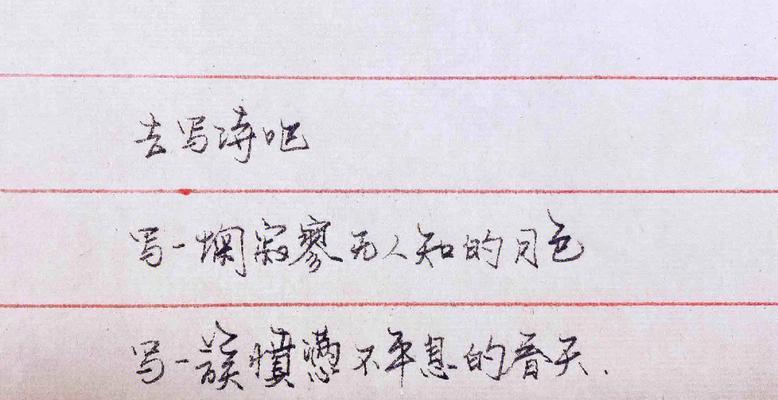 去写诗吧
写一掬寂寥无人知的月色
写一簇愤懑不平息的春天.